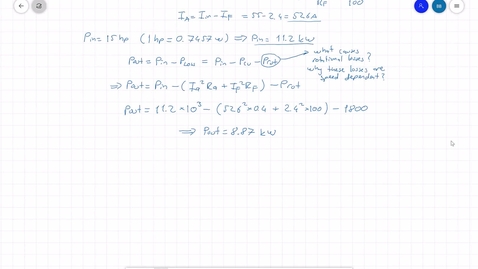 Rp 100
IA = Iin - Ip = 55 - 2.4 = 52.6 A
Pin = 15 hp (1 hp = 0.7457 w) ⇒ Pin = 11.2 kw
Pout = Pin - Ploss = Pin - Pcu - Prot
what causes
rotational losses?
why these losses are
speed dependent?
⇒ Pout = Pin - (Ia²Ra + Ip²Rp) - Prot
Pout = 11.2 × 10³ - (52.6² × 0.4 + 2.4² × 100) - 1800
⇒ Pout = 8.87 kw